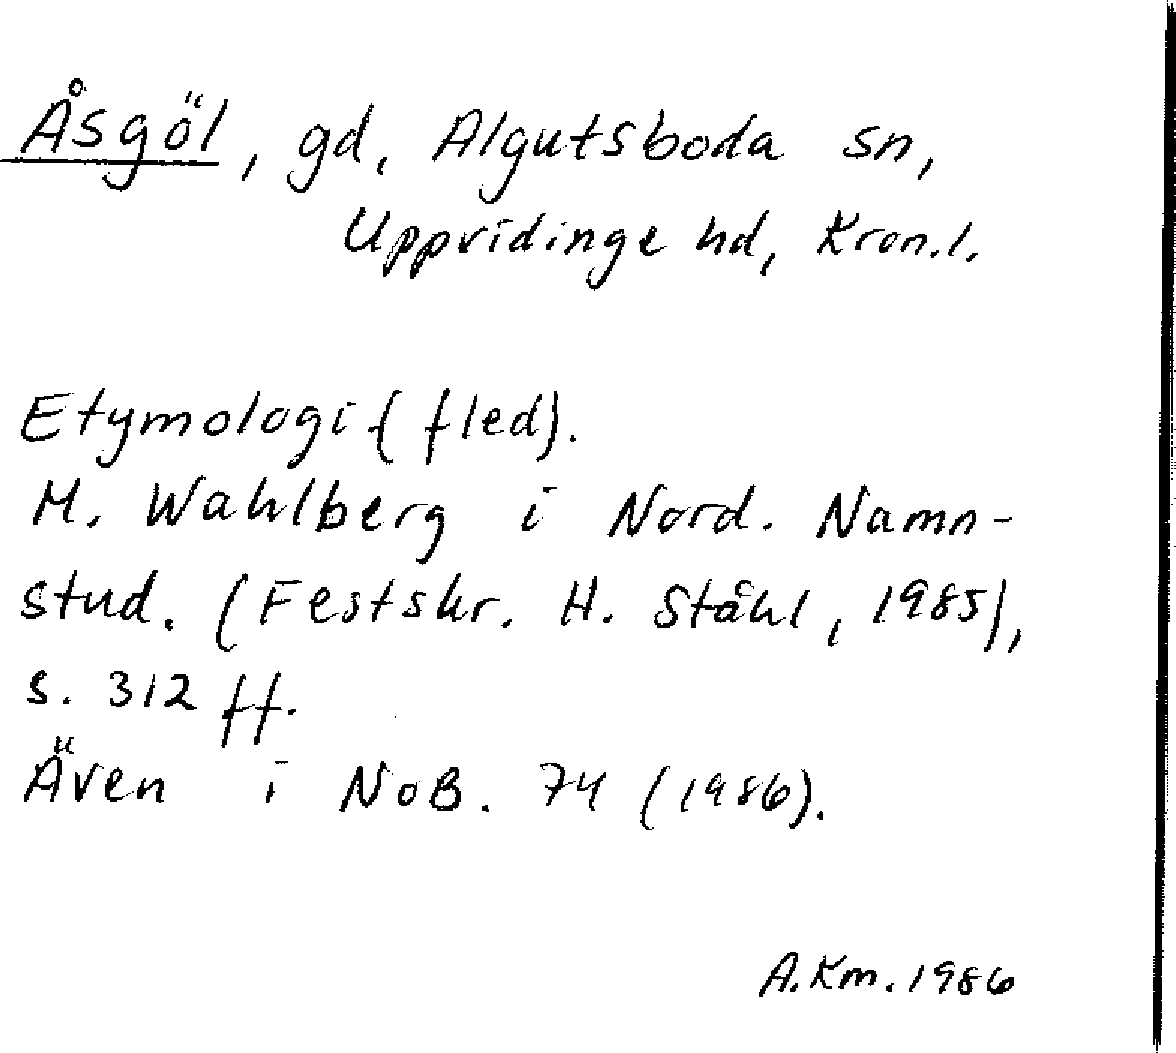 Åsgöl, gd, Algutsboda sn,
Uppvidinge hd, Kron.l.
Etymologi (fled).
M. Wahlberg i Nord. Namn-
stud. (Festskr. H. Ståhl, 1985),
s. 312 ff.
Även i NoB. 74 (1986).
A.Km. 1986